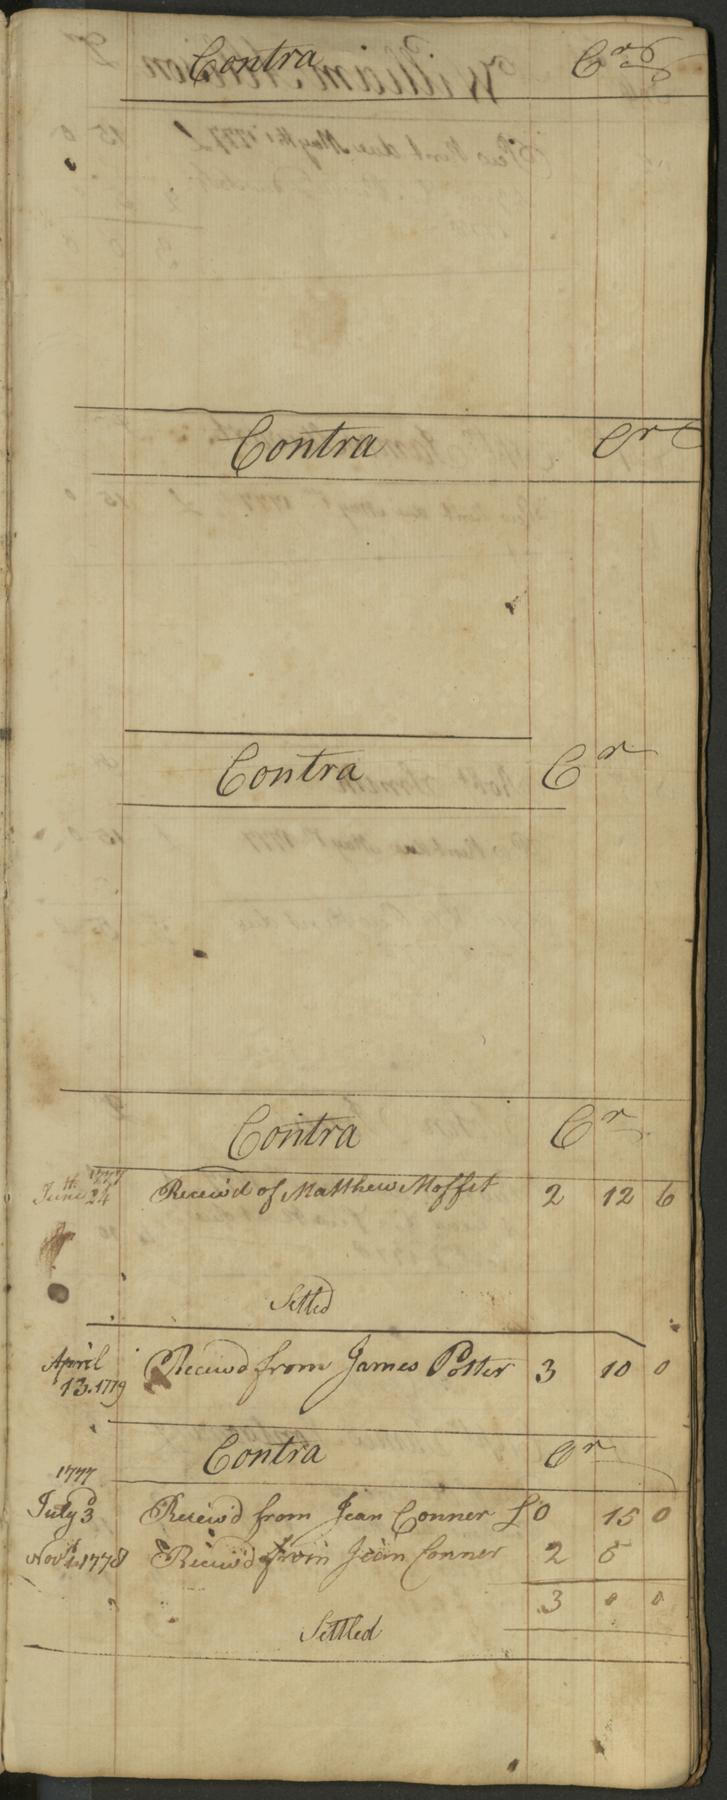 Contra Cr
Contra Cr
Contra Cr
Contra Cr
1777
June 24th Receiv'd of Matthew Moffet 2 12 6
Setled
April
13. 1779 Receiv'd from James Potter 3 10 0
Contra Cr
1777
July 3d Receiv'd from Jean Conner £ 0 15 0
Novr 1. 1778 Receiv'd from Jean Conner 2 5
3 0 0
Settled